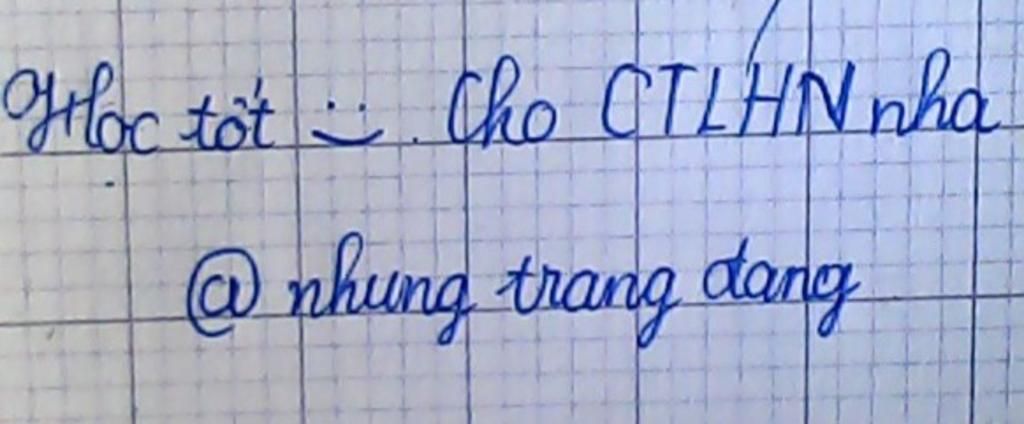 Học tốt :). Cho CTLHN nha
@ nhung trang dang